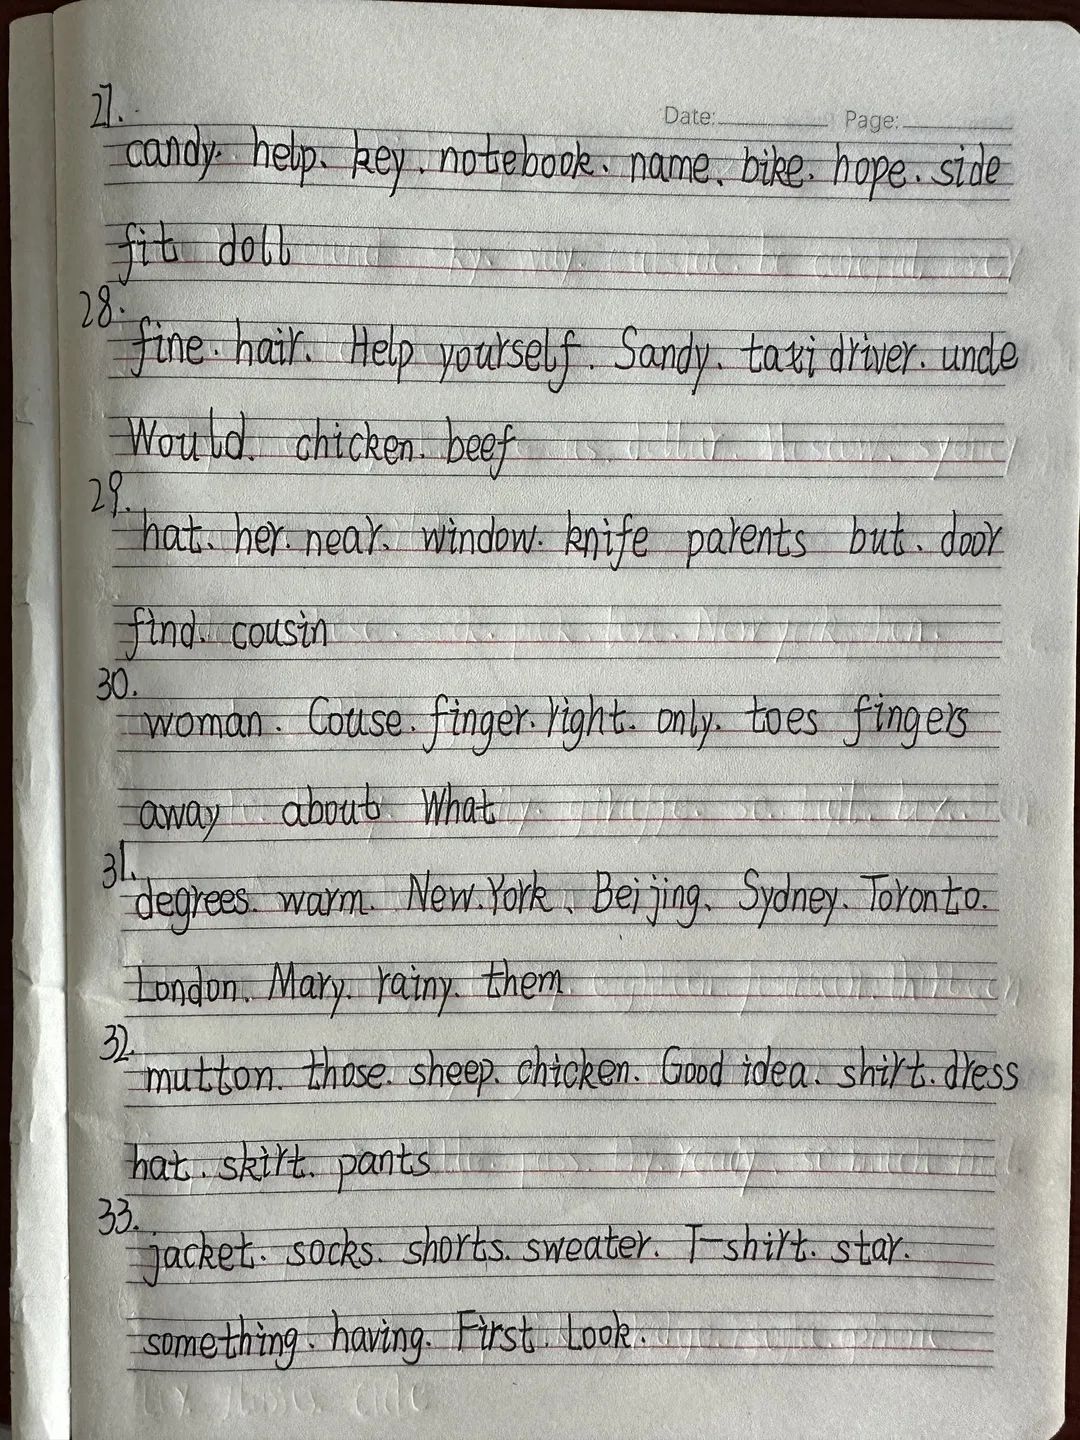 Date: Page:
27.
candy. help. key. notebook. name. bike. hope. side
fit doll
28.
fine. hair. Help yourself. Sandy. taxi driver. uncle
Would. chicken. beef
29.
hat. her. near. window. knife parents but. door
find. cousin
30.
woman. Couse. finger. right. only. toes fingers
away about What
31.
degrees. warm. New.York. Beijing. Sydney. Toronto.
London. Mary. rainy. them.
32.
mutton. those. sheep. chicken. Good idea. shirt. dress
hat. skirt. pants
33.
jacket. socks. shorts. sweater. T-shirt. star.
something. having. First. Look.